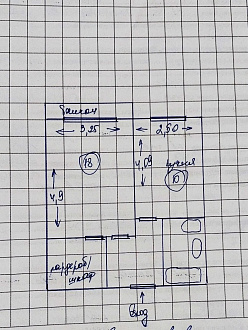 Балкон
3,25
2,50
18
4,09
кухня
10
4,9
гардероб/
шкаф
Вход